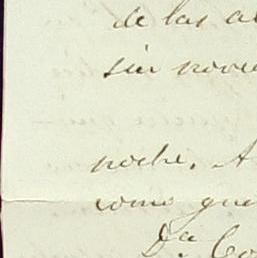 de las a
sin nove
noche. A
como que
Da Co